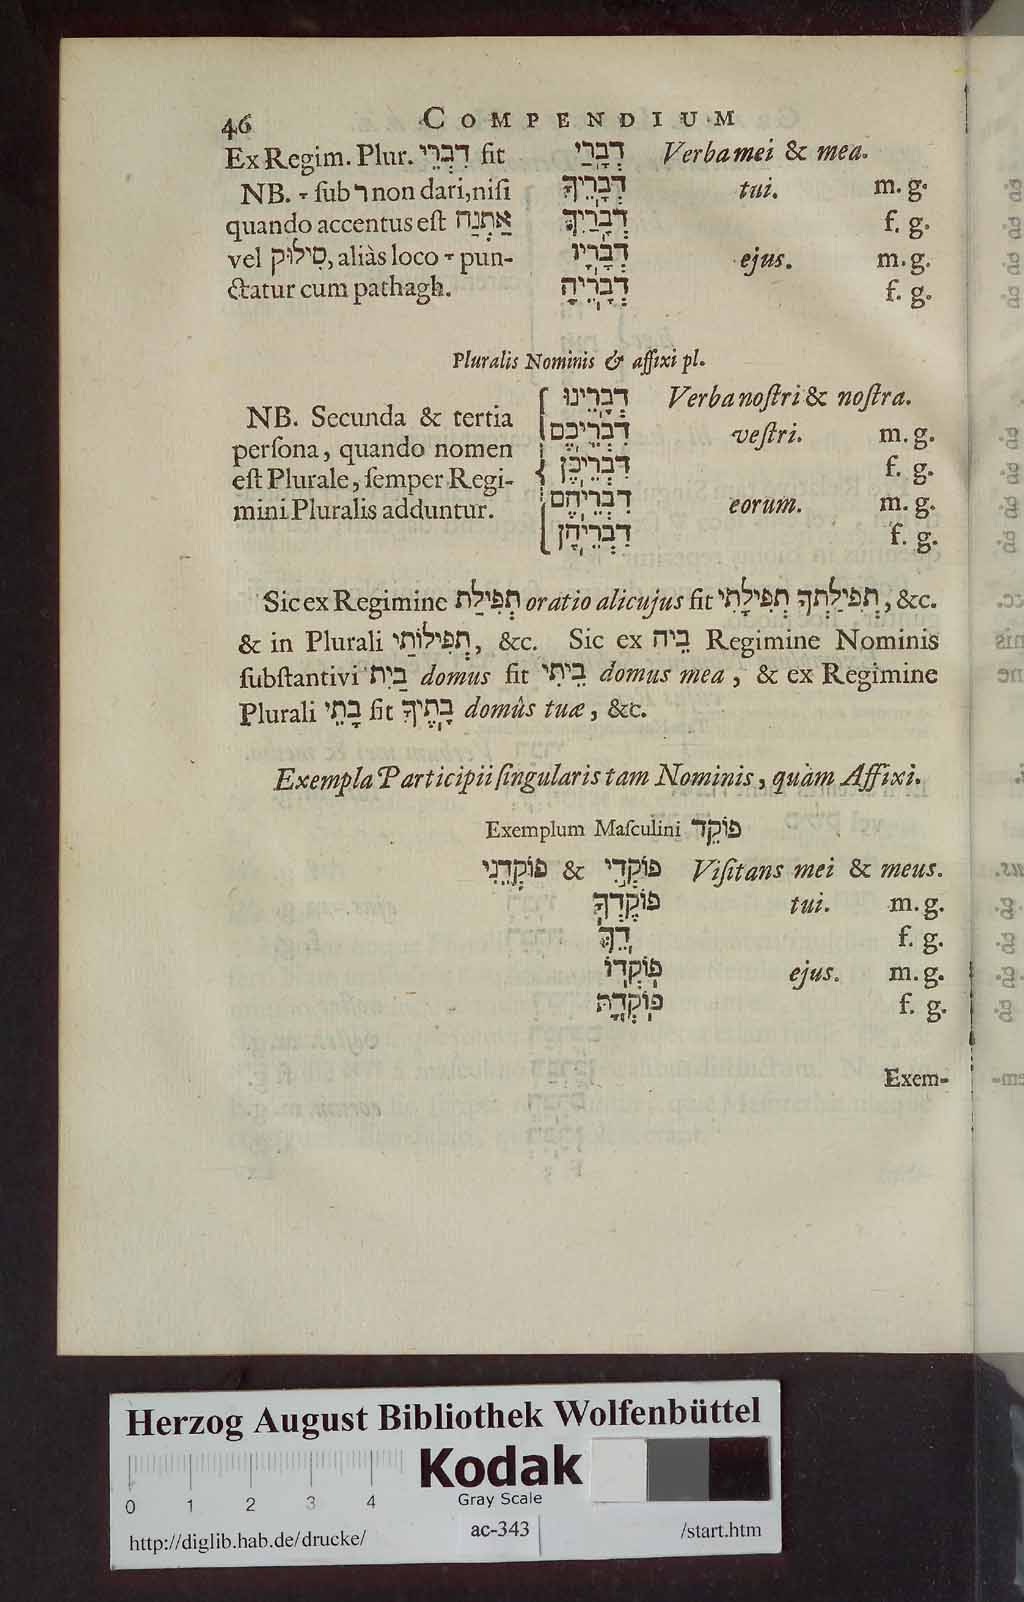 46 COMPENDIUM
Ex Regim. Plur. דִּבְרֵי fit דְּבָרַי Verba mei & mea.
NB. ָ ſub ר non dari, niſi דְּבָרֶיךָ tui. m. g.
quando accentus eſt אַתְנַח דְּבָרַיִךְ f. g.
vel סִילּוּק, aliàs loco ָ pun- דְּבָרָיו ejus. m. g.
ctatur cum pathagh. דְּבָרֶיהָ f. g.
Pluralis Nominis & affixi pl.
דְּבָרֵינוּ Verba noſtri & noſtra.
NB. Secunda & tertia דִּבְרֵיכֶם veſtri. m. g.
perſona, quando nomen דִּבְרֵיכֶן f. g.
eſt Plurale, ſemper Regi- דִּבְרֵיהֶם eorum. m. g.
mini Pluralis adduntur. דִּבְרֵיהֶן f. g.
Sic ex Regimine תְּפִילַת oratio alicujus fit תְּפִילָתִי תְּפִילַתְךָ, &c.
& in Plurali תְּפִילוֹתַי, &c. Sic ex בֵיה Regimine Nominis
ſubſtantivi בַּיִת domus fit בֵּיתִי domus mea, & ex Regimine
Plurali בָּתֵי fit בָּתֶיךָ domûs tuæ, &c.
Exempla Participii ſingularis tam Nominis, quàm Affixi.
Exemplum Maſculini פּוֹקֵד
פּוֹקְדֵנִי & פּוֹקְדִי Viſitans mei & meus.
פּוֹקֶדְךָ tui. m. g.
דֵךְ f. g.
פּוֹקְדוֹ ejus. m. g.
פּוֹקְדָהּ f. g.
Exem-
Herzog August Bibliothek Wolfenbüttel
Kodak
Gray Scale
0 1 2 3 4
http://diglib.hab.de/drucke/ ac-343 /start.htm